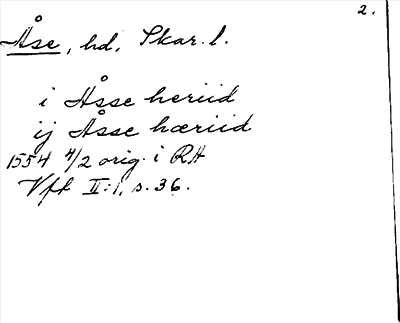 2.
Åse, hd, Skar. l.
i Åsse heriid
ij Åsse hæriid
1554 4/2 orig. i RA
Vfl II:1, s. 36.